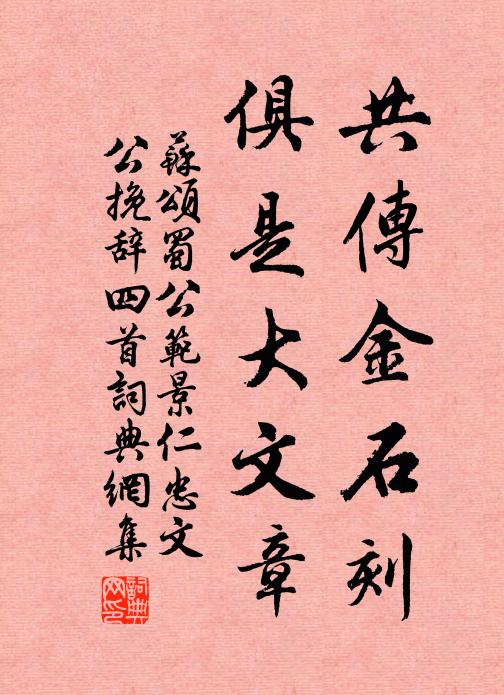 共傳金石刻
俱是大文章
蘇頌蜀公範景仁忠文
公挽辞四首詞典網集
詞典網印